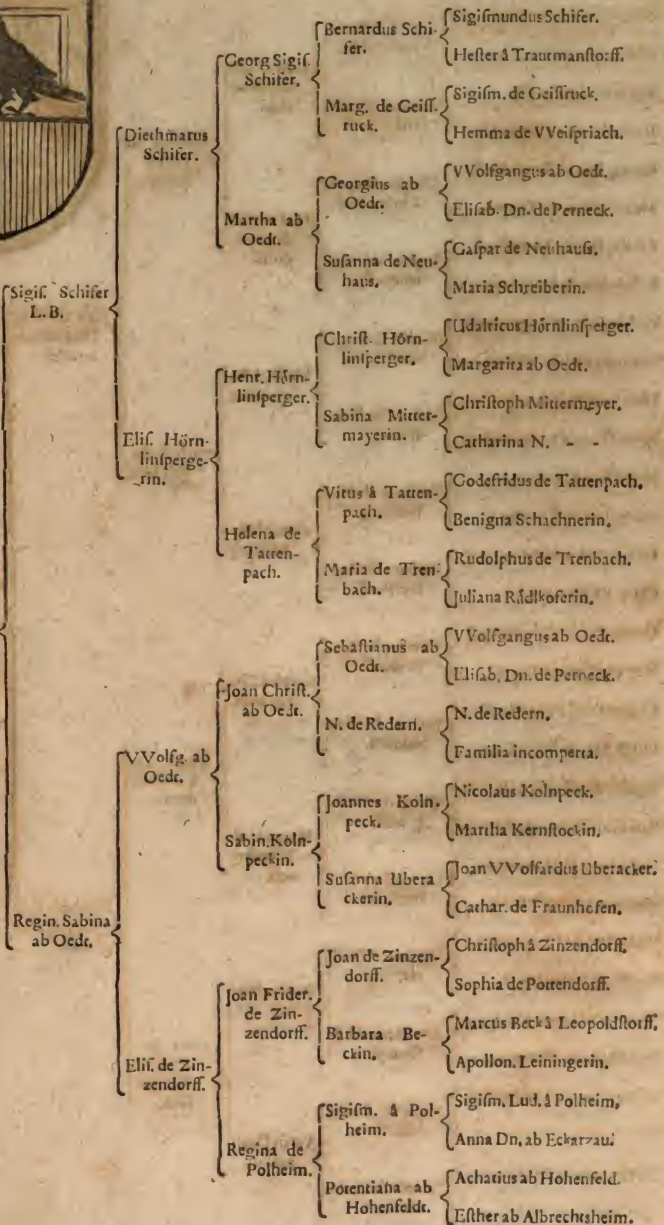 Sigiſ. Schifer
L.B.
Regin. Sabina
ab Oedt.
Diethmarus
Schifer.
Eliſ. Hörn-
linſperge-
rin.
VVolfg. ab
Oedt.
Eliſ. de Zin-
zendorff.
Georg Sigiſ.
Schifer,
Martha ab
Oedt.
Henr. Hörn-
linſperger.
Helena de
Tatten-
pach.
Joan Chriſt.
ab Oedt.
Sabin. Köln-
peckin.
Joan Frider.
de Zin-
zendorff.
Regina de
Polheim.
Bernardus Schi-
fer.
Marg. de Geiſſ-
ruck.
Georgius ab
Oedt.
Suſanna de Neu-
haus.
Chriſt. Hörn-
linſperger,
Sabina Mitter-
mayerin.
Vitus â Tatten-
pach.
Maria de Tren-
bach.
Sebaſtianus ab
Oedt.
N. de Redern.
Joannes Koln-
peck.
Suſanna Ubera
ckerin.
Joan de Zinzen-
dorff.
Barbara Be-
ckin,
Sigiſm. â Pol-
heim.
Potentiana ab
Hohenfeldt.
Sigiſmundus Schifer.
Heſter â Trautmanſtorff.
Sigiſm. de Geiſſruck.
Hemma de VVeiſpriach.
VVolfgangus ab Oedt.
Eliſab. Dn. de Perneck.
Gaſpar de Neuhauſs.
Maria Schreiberin.
Udalricus Hörnlinſperger.
Margarita ab Oedt.
Chriſtoph Mittermeyer.
Catharina N. - -
Godefridus de Tattenpach.
Benigna Schachnerin.
Rudolphus de Trenbach.
Juliana Rädlkoferin.
VVolfgangus ab Oedt.
Eliſab. Dn. de Perneck.
N. de Redern.
Familia incomperta.
Nicolaus Kolnpeck.
Martha Kernſtockin.
Joan VVolfardus Uberacker.
Cathar. de Fraunhofen.
Chriſtoph â Zinzendorff.
Sophia de Pottendorff.
Marcus Beck â Leopoldſtorff.
Apollon. Leiningerin.
Sigiſm. Lud. â Polheim.
Anna Dn. ab Eckarzau.
Achatius ab Hohenfeld.
Eſther ab Albrechtsheim.